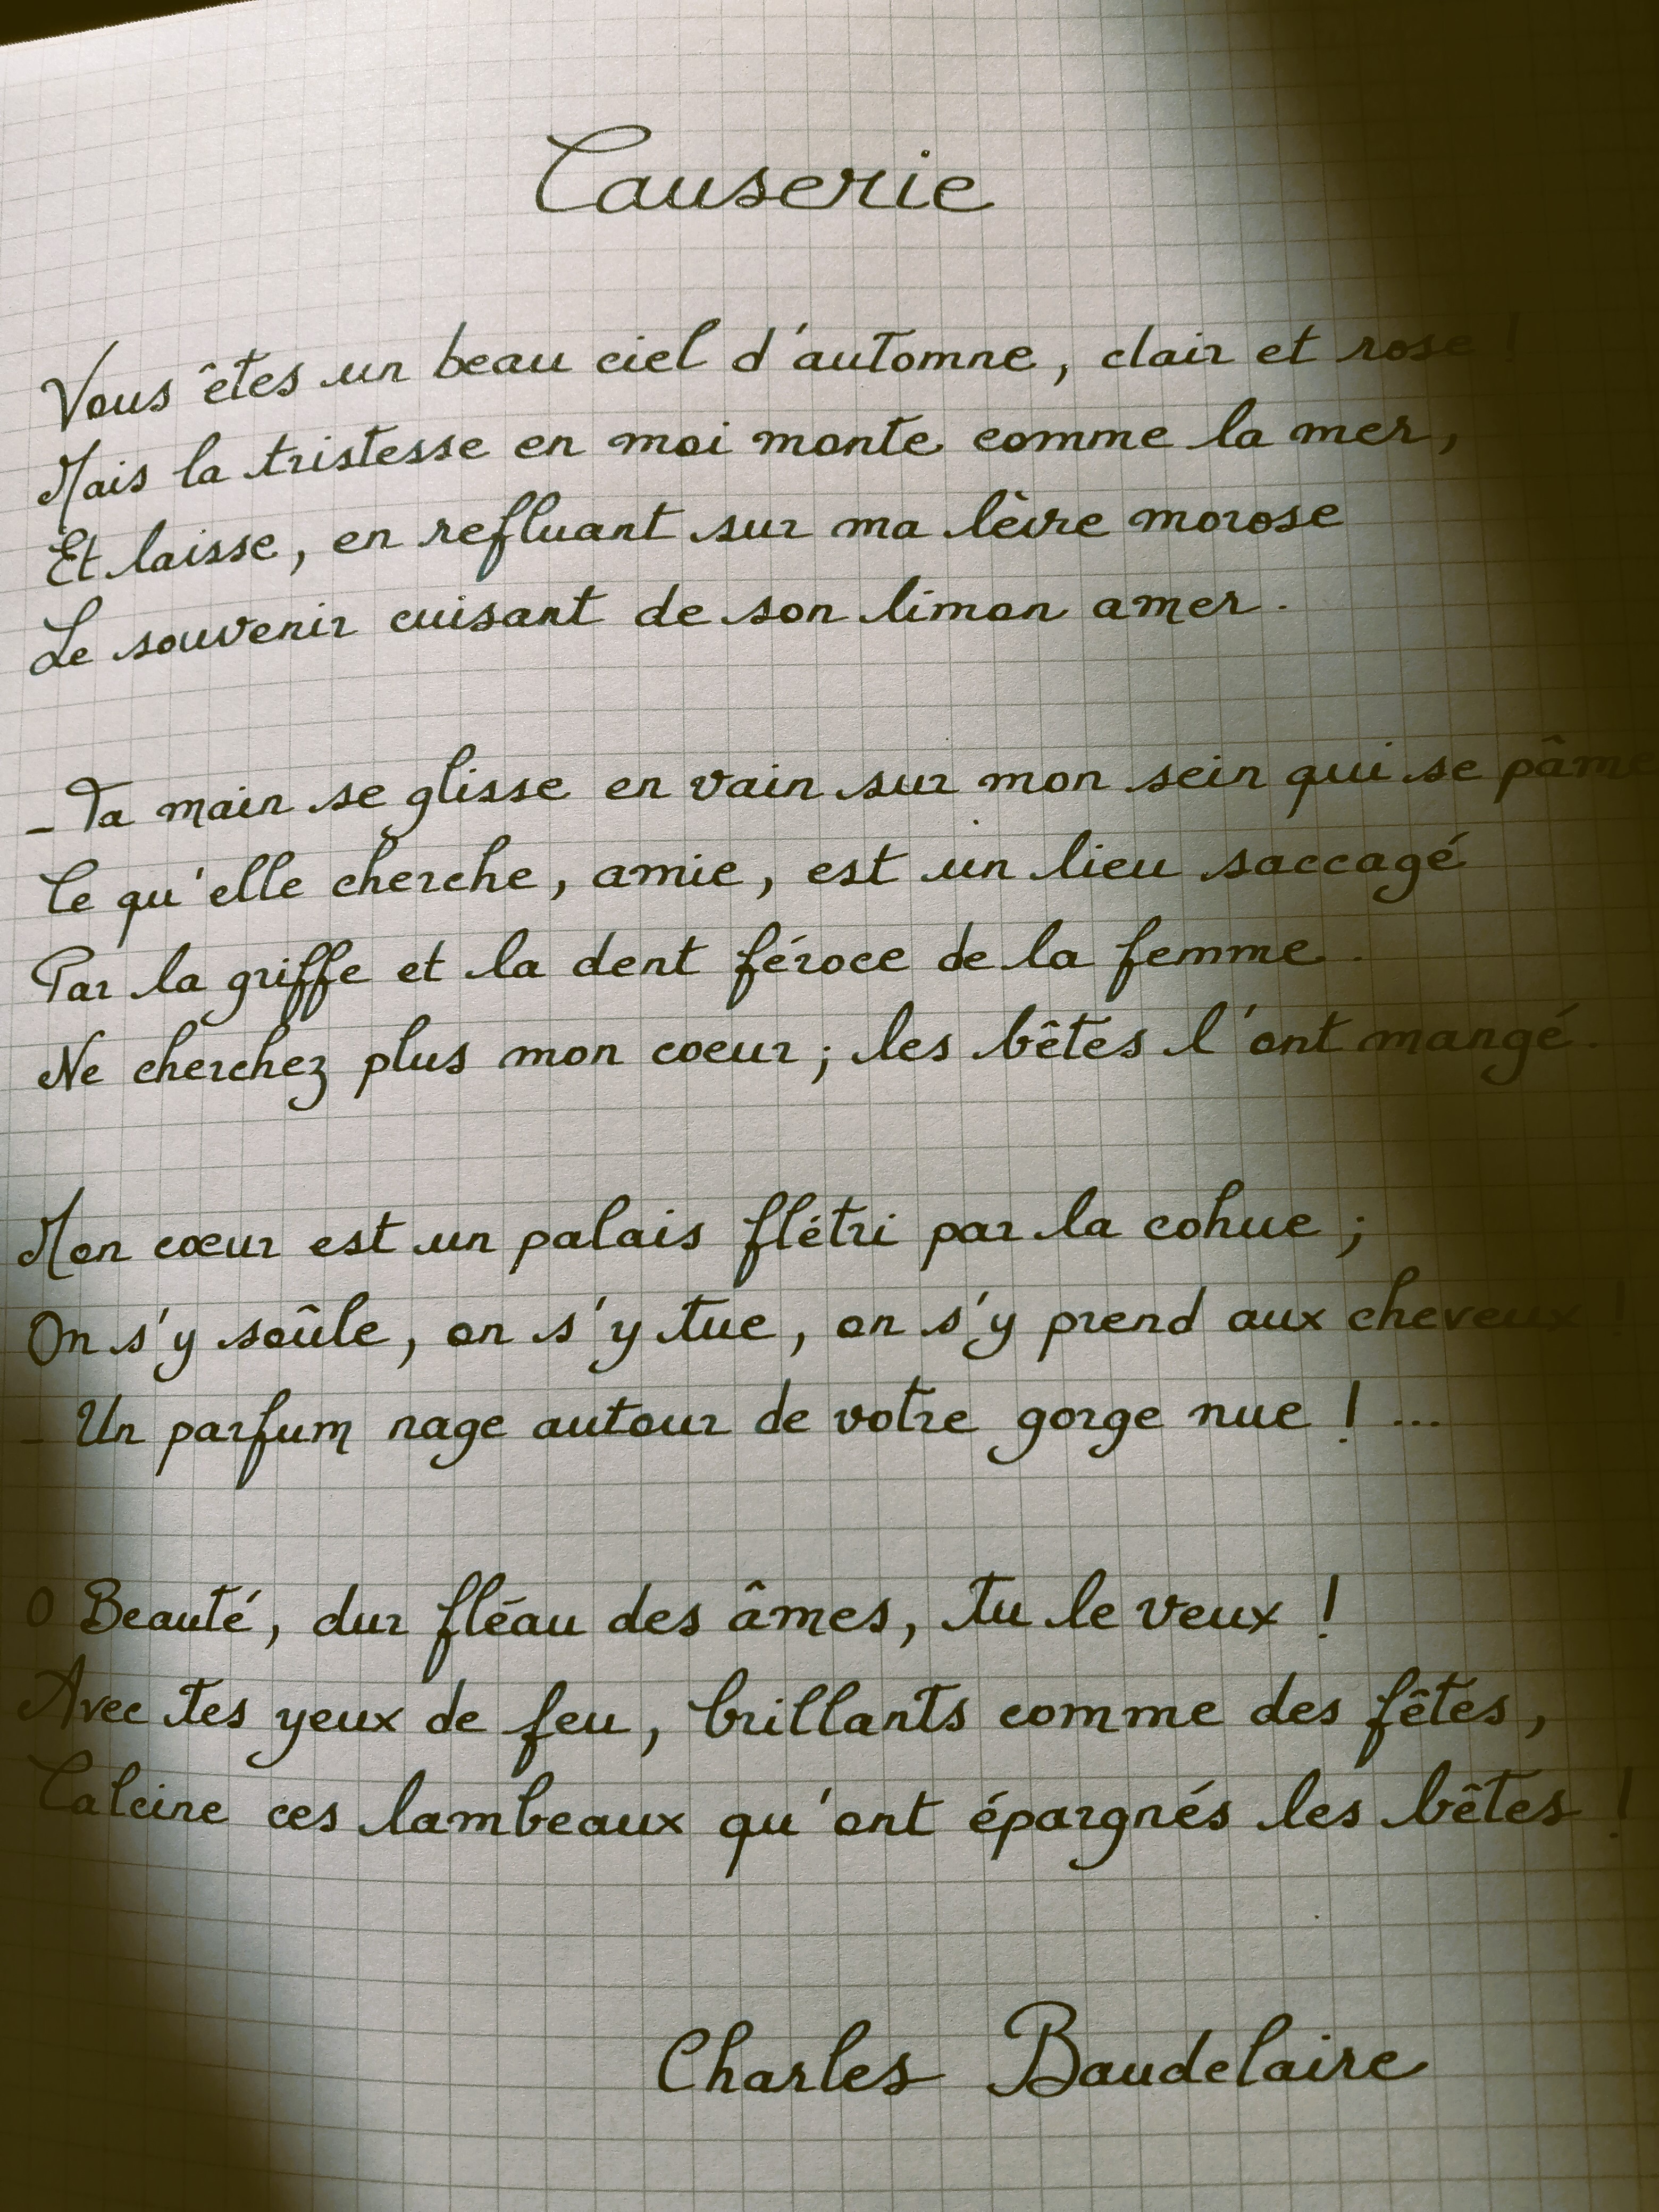 Causerie
Vous êtes un beau ciel d'automne, clair et rose !
Mais la tristesse en moi monte comme la mer,
Et laisse, en refluant sur ma lèvre morose
Le souvenir cuisant de son limon amer.
- Ta main se glisse en vain sur mon sein qui se pâme
Ce qu'elle cherche, amie, est un lieu saccagé
Par la griffe et la dent féroce de la femme.
Ne cherchez plus mon coeur ; les bêtes l'ont mangé.
Mon cœur est un palais flétri par la cohue ;
On s'y soûle, on s'y tue, on s'y prend aux cheveux !
- Un parfum nage autour de votre gorge nue ! ...
O Beauté, dur fléau des âmes, tu le veux !
Avec tes yeux de feu, brillants comme des fêtes,
Calcine ces lambeaux qu'ont épargnés les bêtes !
Charles Baudelaire